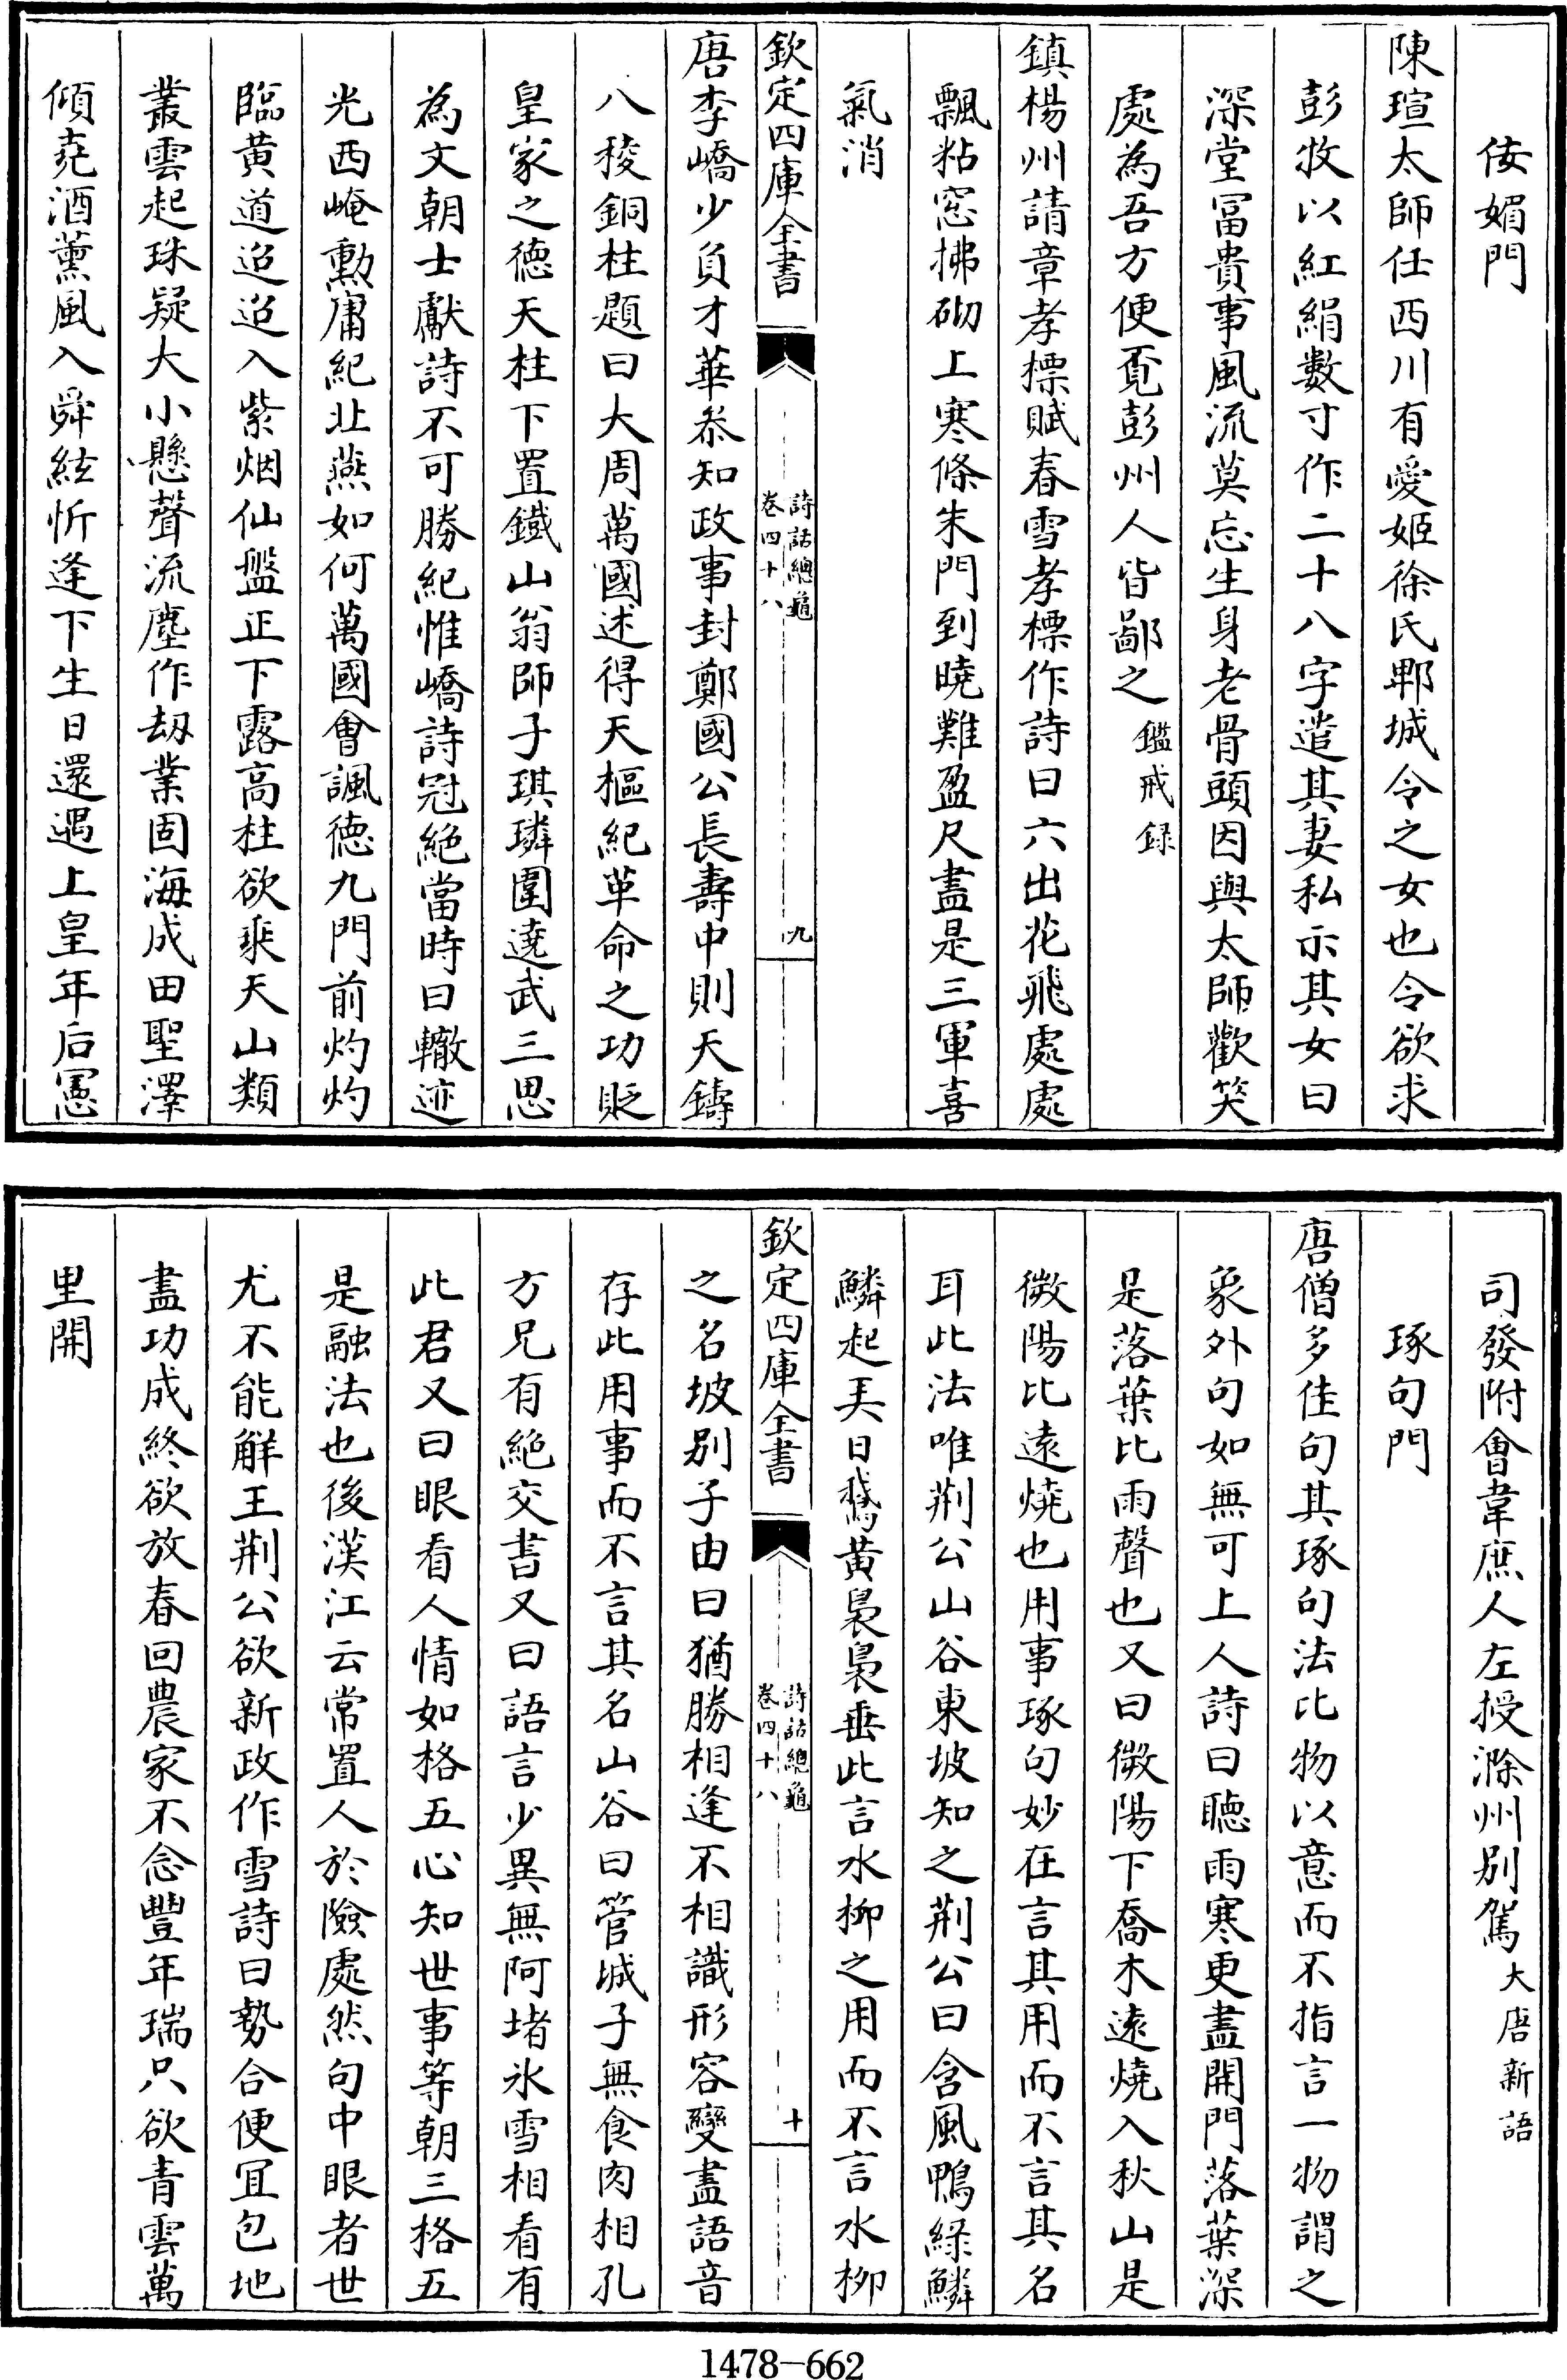 佞媚門
陳瑄太師任西川有愛姬徐氏郫城令之女也令欲求
彭牧以紅絹數寸作二十八字遣其妻私示其女曰
深堂冨貴事風流莫忘生身老骨頭因與太師歡笑
處為吾方便覓彭州人皆鄙之鑑戒録
鎮楊州請章孝標賦春雪孝標作詩曰六出花飛處處
飄粘窓拂砌上寒條朱門到曉難盈尺盡是三軍喜
氣消
欽定四庫全書
詩話總龜
卷四十八
九
唐李嶠少負才華叅知政事封鄭國公長壽中則天鑄
八稜銅柱題曰大周萬國述得天樞紀革命之功貶
皇家之徳天柱下置鐵山翁師子琪璘圍遶武三思
為文朝士獻詩不可勝紀惟嶠詩冠絶當時曰轍迹
光西崦勲庸紀北燕如何萬國會諷徳九門前灼灼
臨黄道迢迢入紫烟仙盤正下露高柱欲乘天山類
叢雲起珠疑大小懸聲流塵作刼業固海成田聖澤
傾堯酒薫風入舜絃忻逢下生日還遇上皇年后憲
司發附會韋庶人左授滁州别駕大唐新語
琢句門
唐僧多佳句其琢句法比物以意而不指言一物謂之
象外句如無可上人詩曰聴雨寒更盡開門落葉深
是落葉比雨聲也又曰微陽下喬木逺燒入秋山是
微陽比逺燒也用事琢句妙在言其用而不言其名
耳此法唯荆公山谷東坡知之荆公曰含風鴨緑鱗
鱗起弄日鵞黄裊裊垂此言水柳之用而不言水柳
欽定四庫全書
詩話總龜
卷四十八
十
之名坡别子由曰猶勝相逢不相識形容變盡語音
存此用事而不言其名山谷曰管城子無食肉相孔
方兄有絶交書又曰語言少異無阿堵氷雪相看有
此君又曰眼看人情如格五心知世事等朝三格五
是融法也後漢江云常置人於險處然句中眼者世
尤不能解王荆公欲新政作雪詩曰勢合便冝包地
盡功成終欲放春回農家不念豐年瑞只欲青雲萬
里開
1478-662